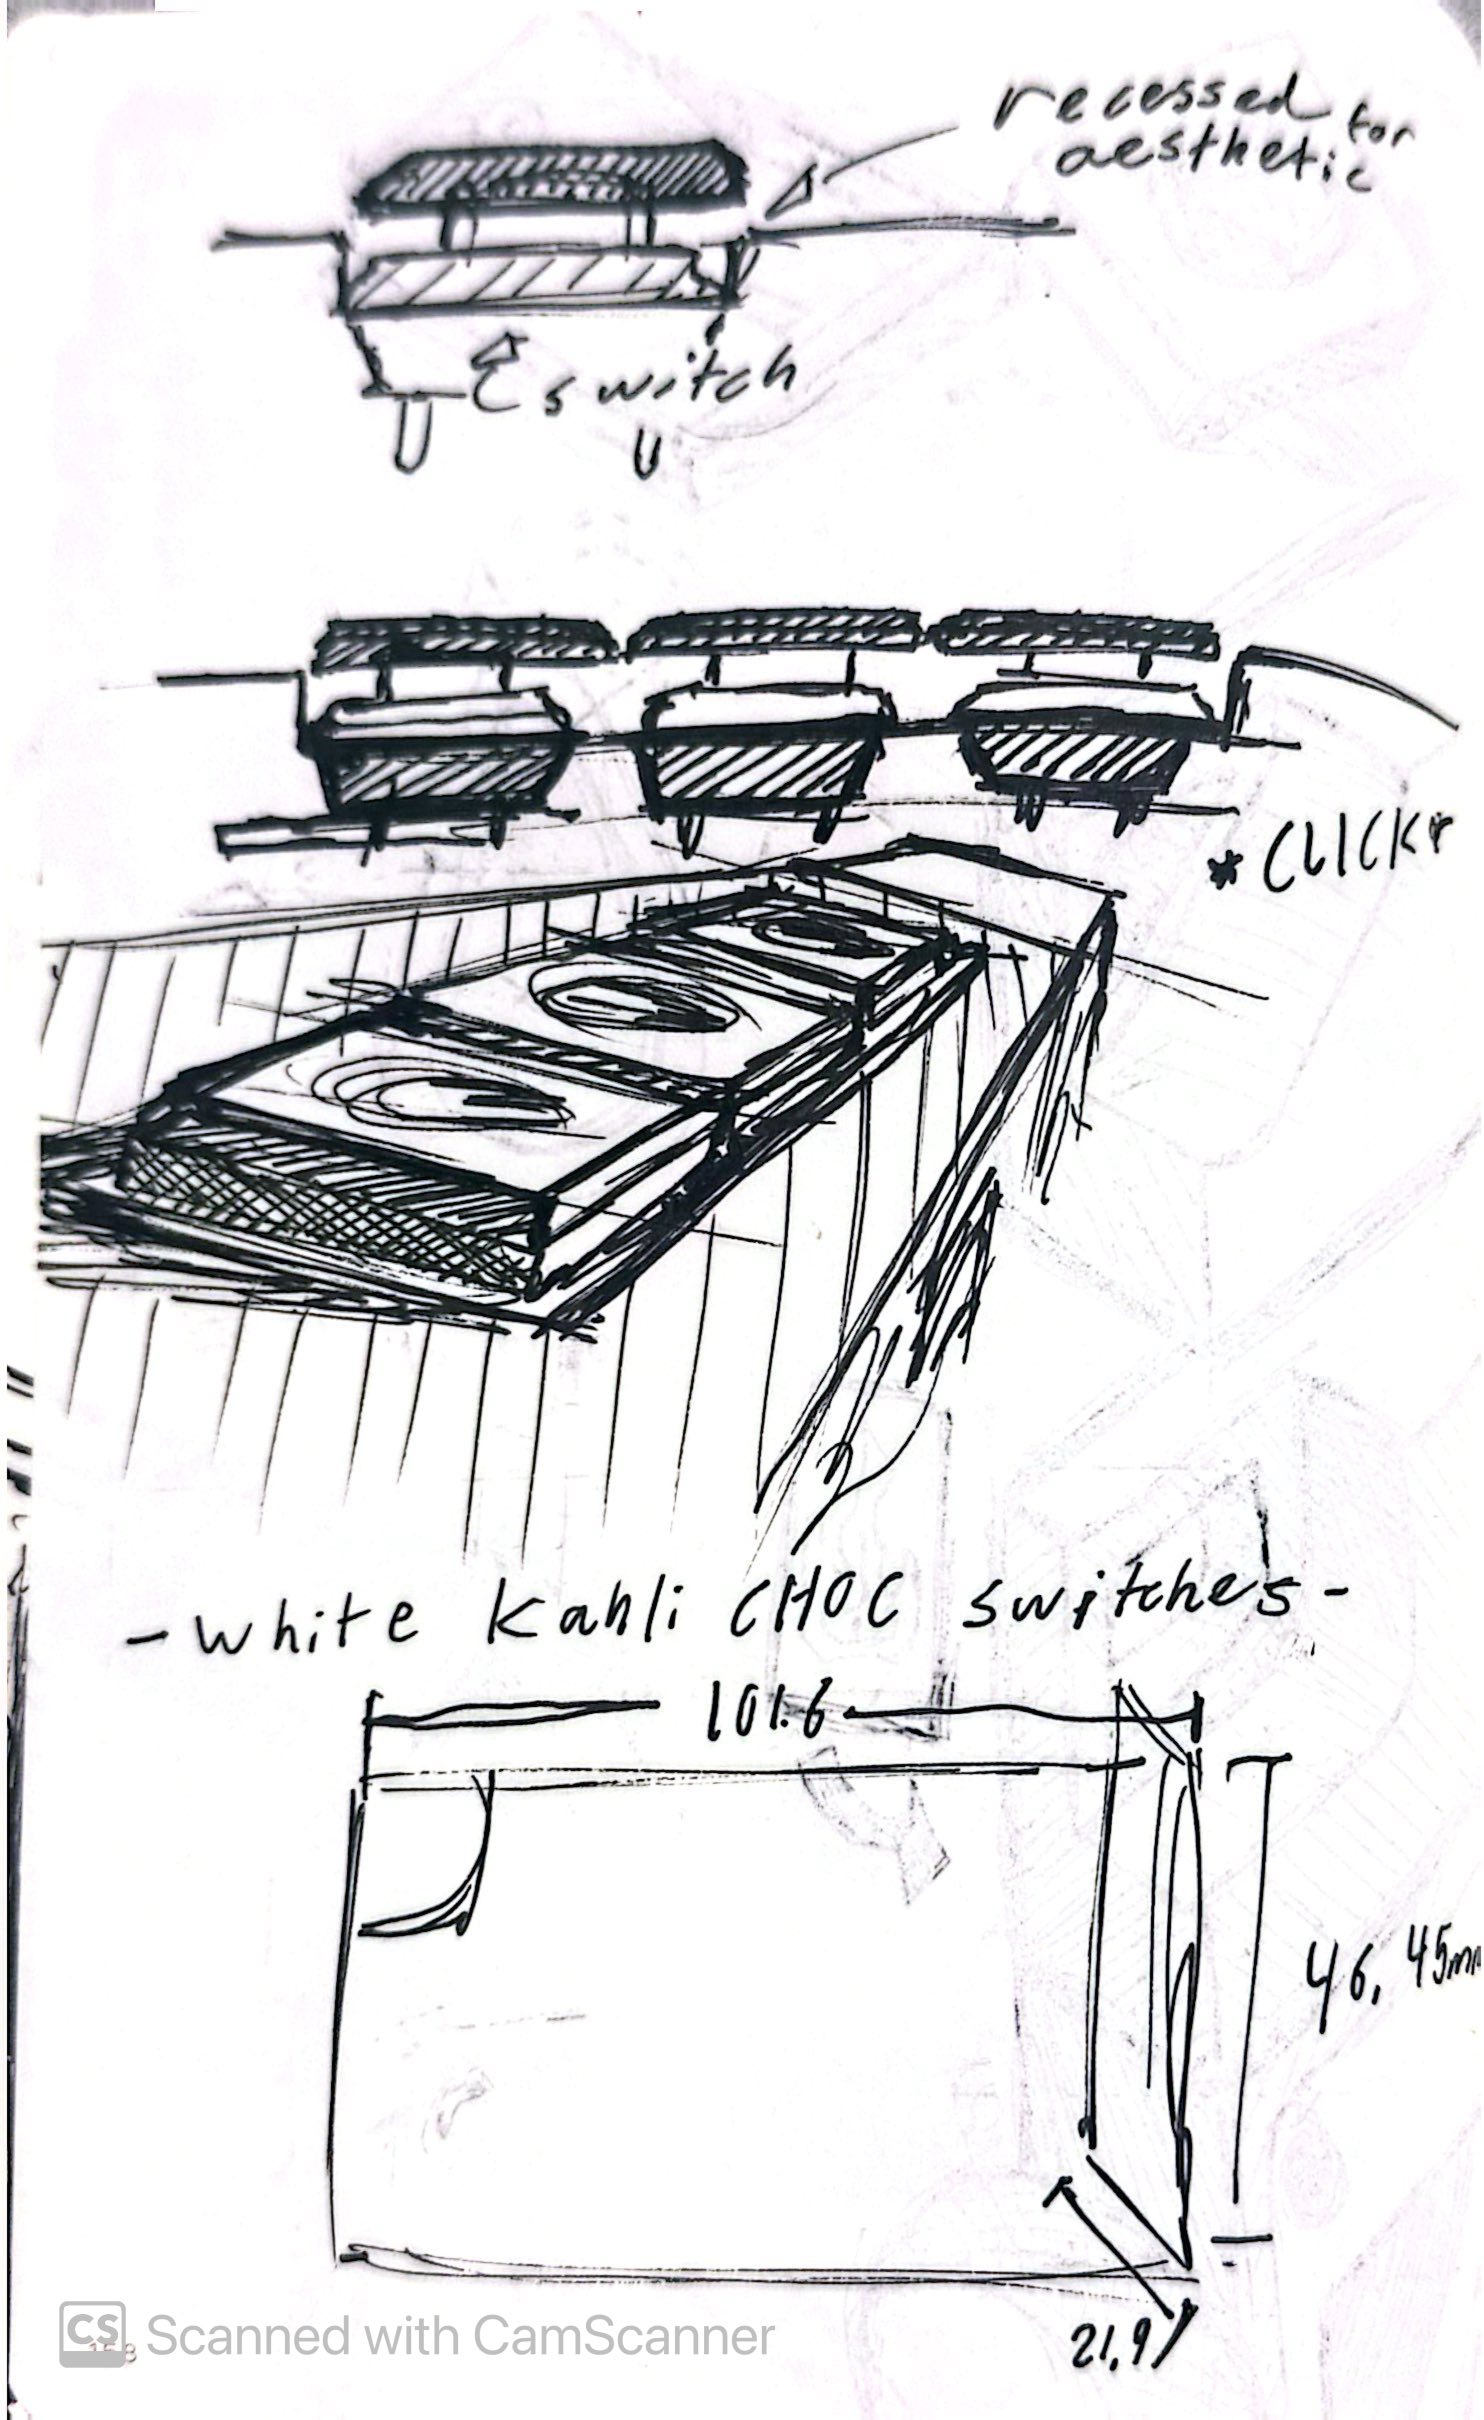 recessed for
aesthetic
switch
*CLICK*
-white Kahli CHOC switches-
101.6
46.45mm
21.9
CS Scanned with CamScanner